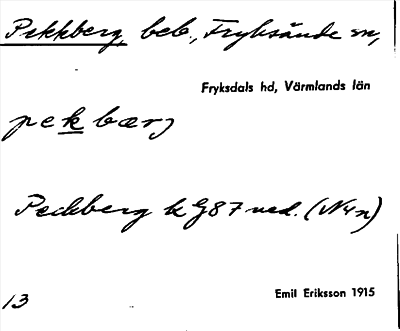 Pekkberg, beb., Fryksände sn,
Fryksdals hd, Värmlands län
pekbærj
Peckberg k G87 ned. (N4n)
13
Emil Eriksson 1915